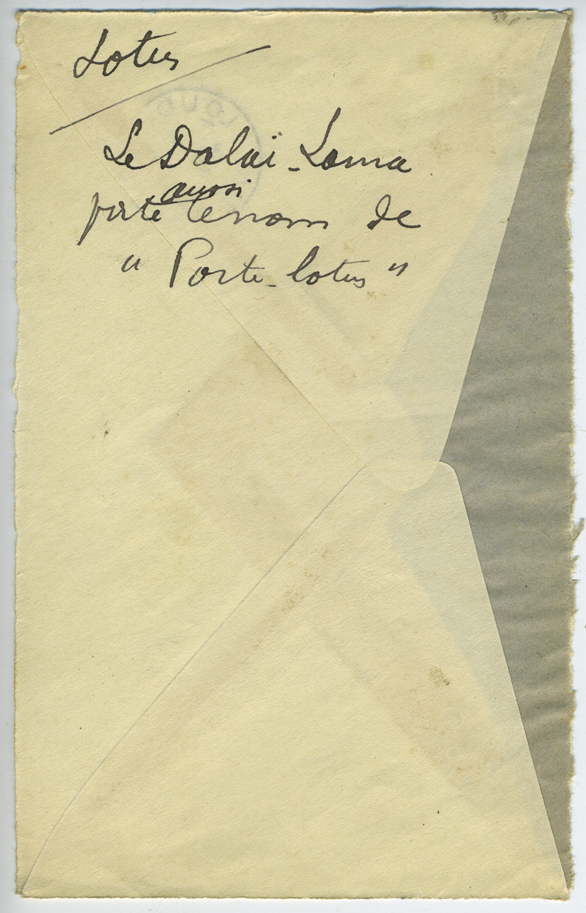 Lotus
Le Dalaï-Lama
aussi
porte le nom de
"Porte-lotus"